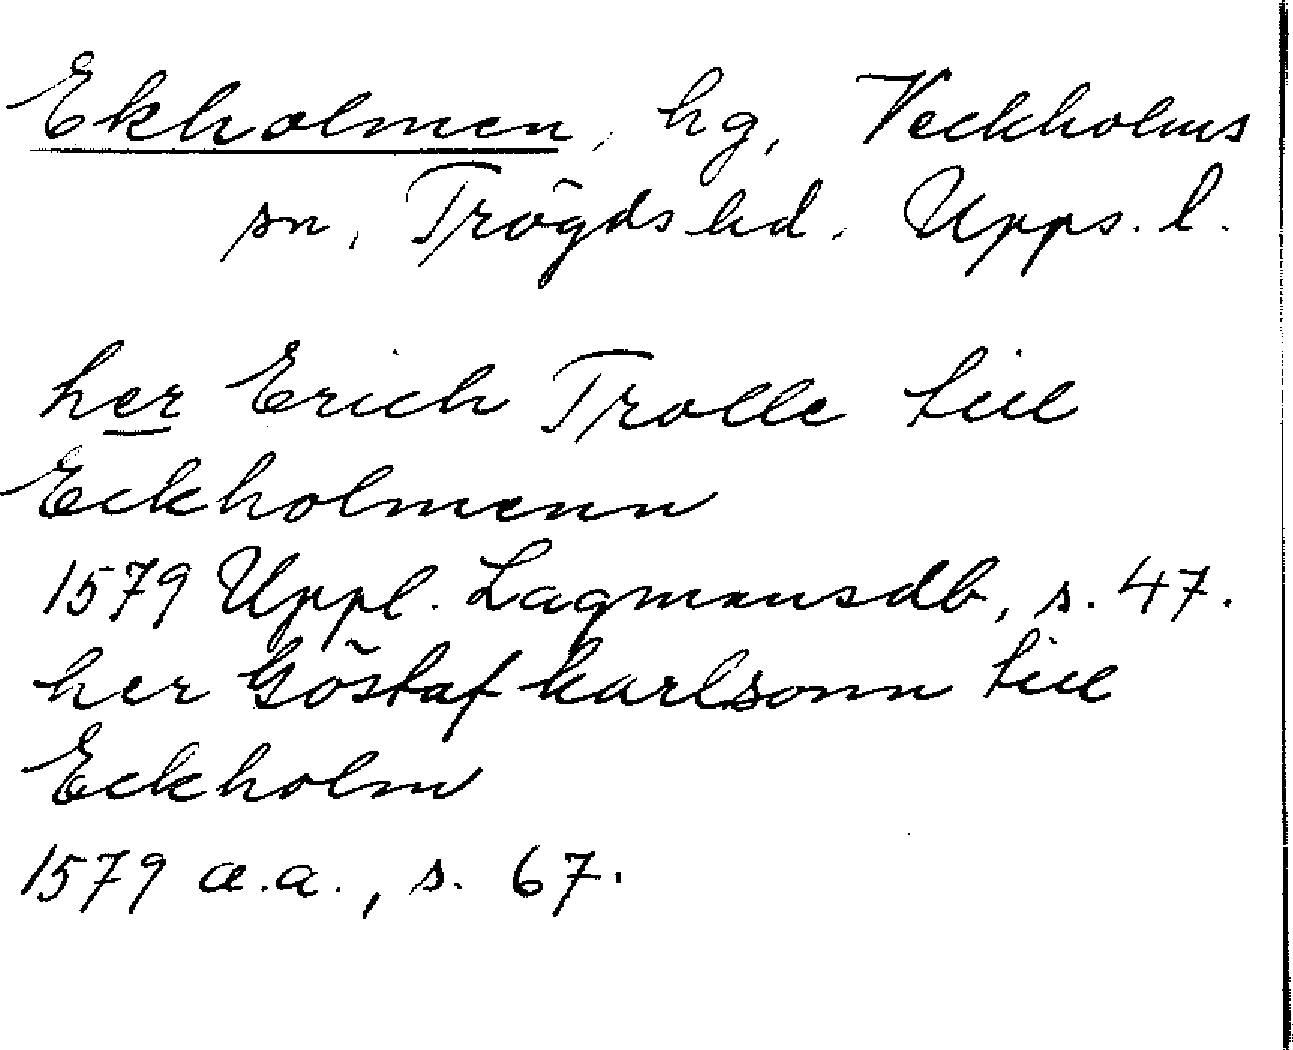 Ekholmen, hg, Veckholms
sn, Trögds hd. Upps. l.
her Erich Trolle till
Eckholmenn
1579 Uppl. Lagmansdb, s. 47.
her Göstaf karlsonn till
Eckholm
1579 a.a., s. 67.